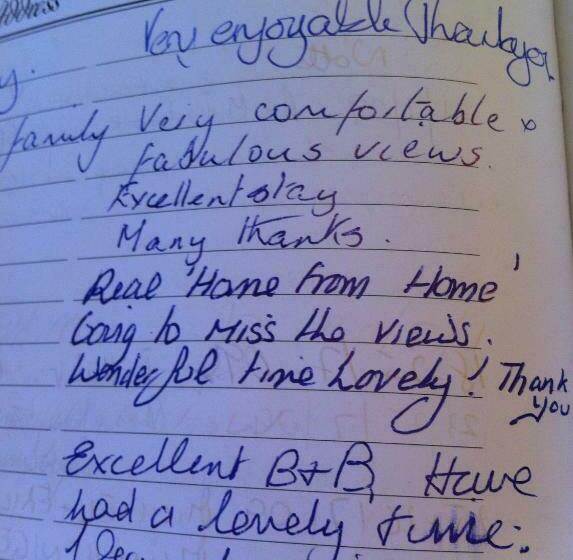 Address
Very enjoyable Thankyou
y.
family Very comfortable &
fabulous views.
Excellent stay
Many thanks.
Real 'Home from Home'
Going to Miss the views.
Wonderful time Lovely! Thank
you
Excellent B+B, Have
had a lovely time.